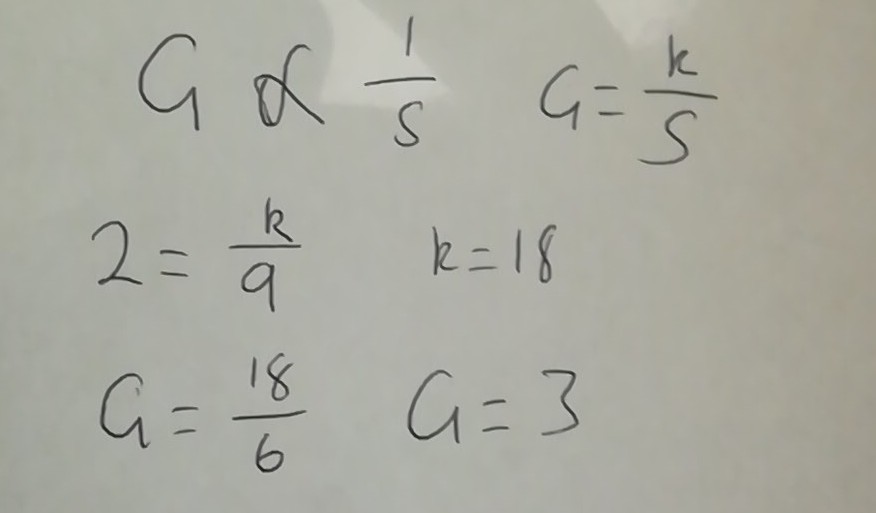 G ∝ 1/S G = k/S
2 = k/9 k = 18
G = 18/6 G = 3